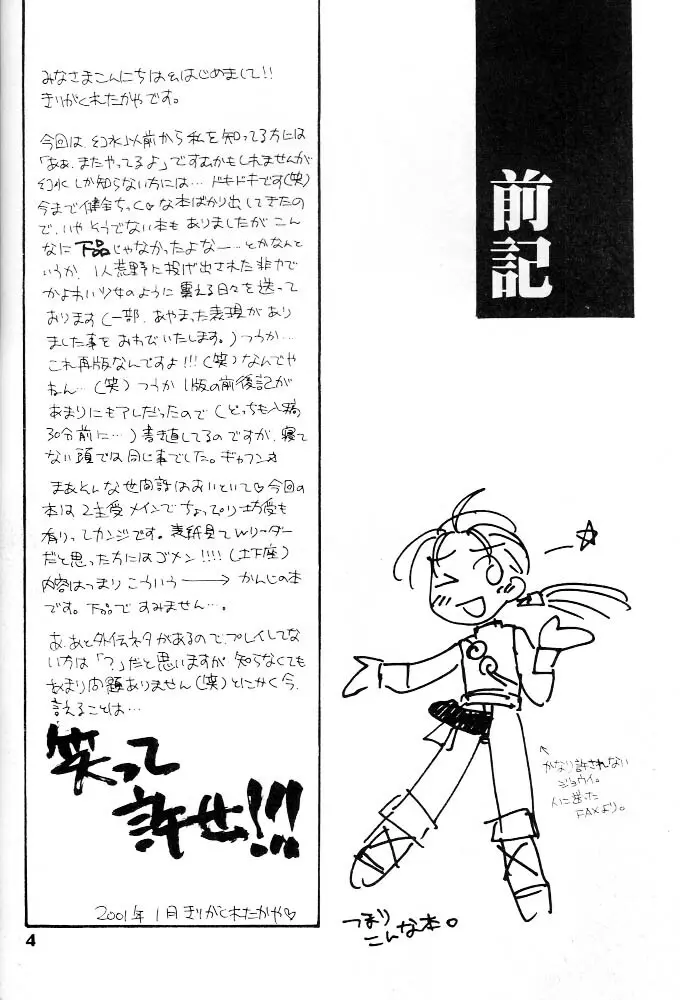 前記
みなさまこんにちは&はじめまして!!
きりがくれたかやです。
今回は、幻水以前から私を知ってる方には
「ああ、またやってるよ」ですむかもしれませんが
幻水しか知らない方には…ドキドキです(笑)
今まで健全ちっく♡な本ばかり出してきたの
で、いやそうでない本もありましたがこん
なに下品じゃなかったよなー…とかなんと
いうか、1人荒野に投げ出された非力で
かよわい少女のように震える日々を送って
おります(一部、あやまった表現があり
ました事をおわびいたします。)つうか…
これ再版なんですよ!!!(笑)なんでや
ねん…(笑)つうか1版の前後記が
あまりにもアレだったので(どっちも入稿
30分前に…)書き直してるのですが、寝て
ない頭では同じ事でした。ギャフン☆
まあそんな世間話はおいといて♡今回の
本は2主受メインでちょっぴり坊受も
有りってカンジです。表紙見てWリーダー
だと思った方にはゴメン!!!!(土下座)
内容はつまりこういう→かんじの本
です。下品ですみません…。
あ、あと外伝ネタがあるので、プレイしてな
い方は「?」だと思いますが知らなくても
あまり問題ありません(笑)とにかく今、
言えることは…
笑って
許せ!!!
2001年1月きりがくれたかや♡
かなり許されない
ジョウイ。
人に送った
FAXより。
つまり
こんな本。
4